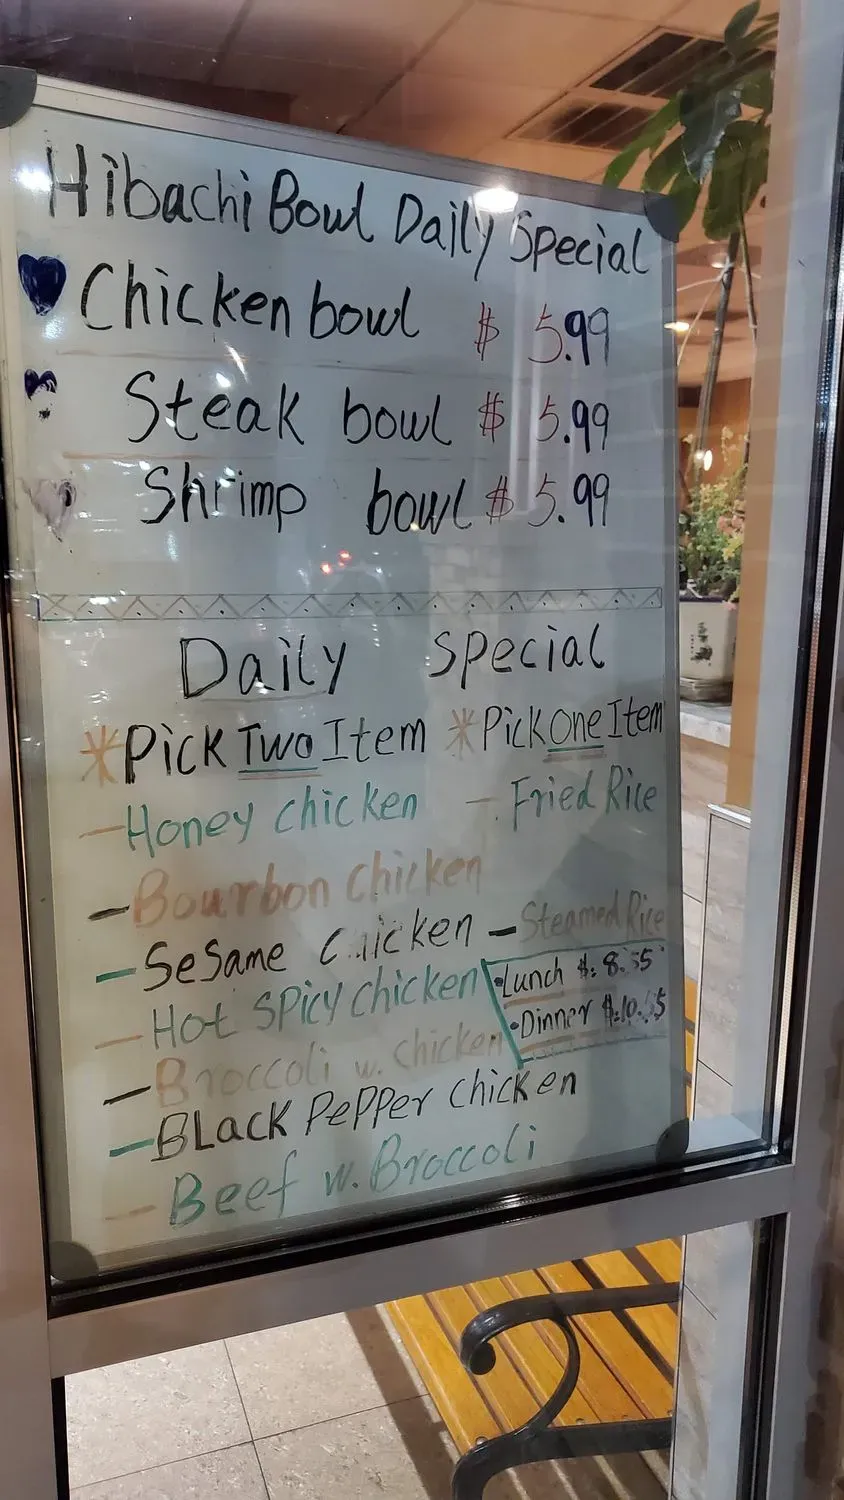 Hibachi Bowl Daily Special
Chicken bowl $ 5.99
Steak bowl $ 5.99
Shrimp bowl $ 5.99
Daily Special
*Pick Two Item
*Pick One Item
- Honey chicken
- Fried Rice
- Bourbon chicken
- Steamed Rice
- Sesame Chicken
• Lunch $:
- Hot Spicy chicken
• Dinner $:
- Broccoli w. chicken
- Black Pepper chicken
- Beef w. Broccoli